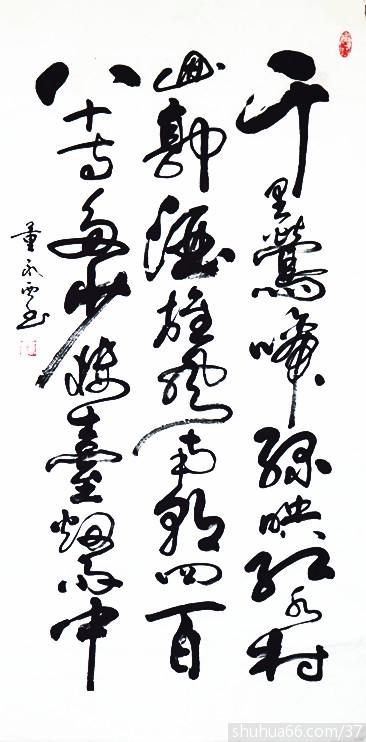 千里鶯啼綠映紅水村
山郭酒旗風南朝四百
八十寺多少樓臺烟雨中
shuhua66.com/37